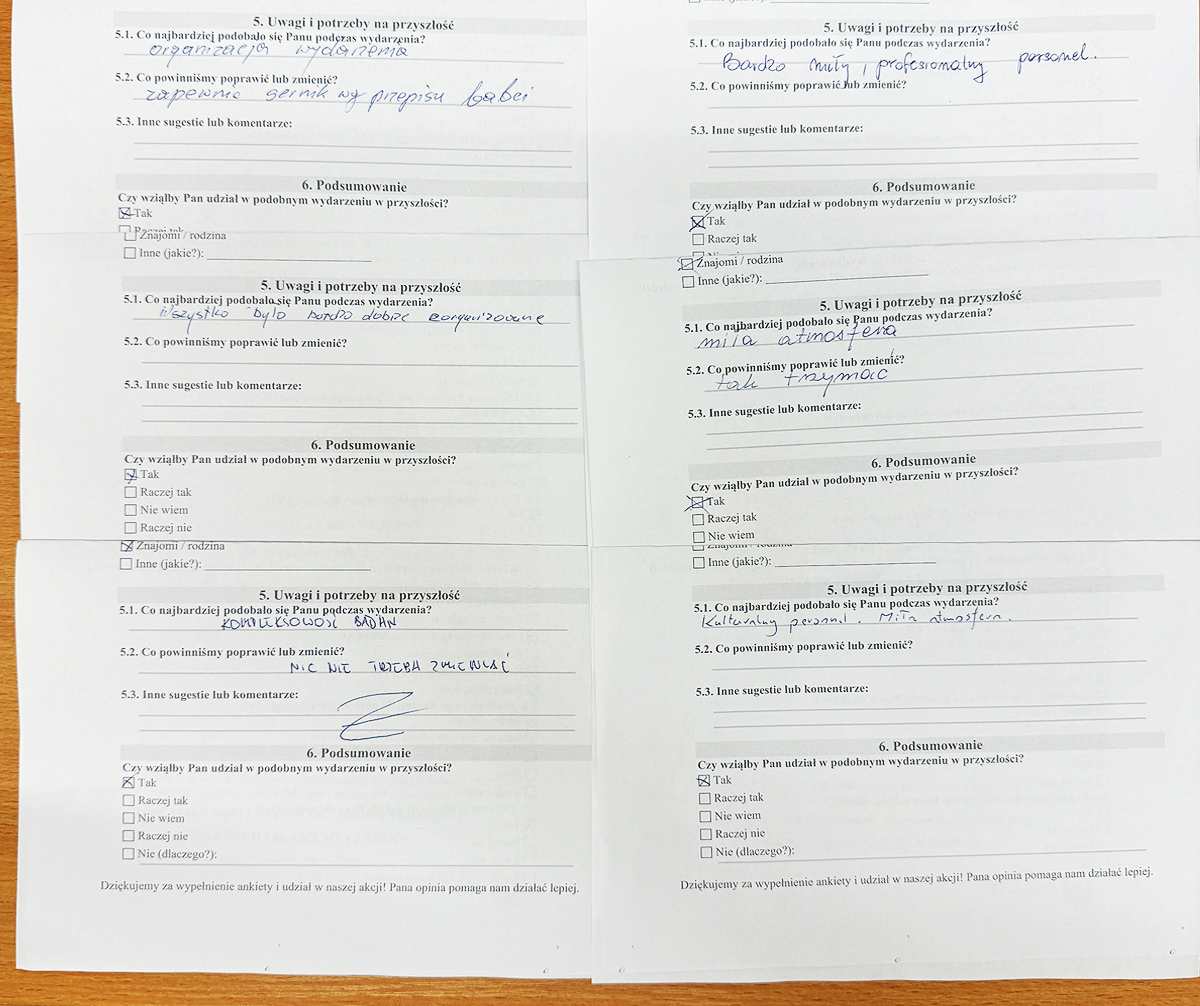 5. Uwagi i potrzeby na przyszłość
5.1. Co najbardziej podobało się Panu podczas wydarzenia?
organizacja wydarzenia
5.2. Co powinniśmy poprawić lub zmienić?
zapewnić sernik wg przepisu babci
5.3. Inne sugestie lub komentarze:
6. Podsumowanie
Czy wziąłby Pan udział w podobnym wydarzeniu w przyszłości?
Tak
Raczej tak
Znajomi / rodzina
Inne (jakie?):
5. Uwagi i potrzeby na przyszłość
5.1. Co najbardziej podobało się Panu podczas wydarzenia?
Wszystko było bardzo dobrze zorganizowane
5.2. Co powinniśmy poprawić lub zmienić?
5.3. Inne sugestie lub komentarze:
6. Podsumowanie
Czy wziąłby Pan udział w podobnym wydarzeniu w przyszłości?
Tak
Raczej tak
Nie wiem
Raczej nie
Znajomi / rodzina
Inne (jakie?):
5. Uwagi i potrzeby na przyszłość
5.1. Co najbardziej podobało się Panu podczas wydarzenia?
KOMPLEKSOWOŚĆ BADAŃ
5.2. Co powinniśmy poprawić lub zmienić?
NIC NIE TRZEBA ZMIENIAĆ
5.3. Inne sugestie lub komentarze:
6. Podsumowanie
Czy wziąłby Pan udział w podobnym wydarzeniu w przyszłości?
Tak
Raczej tak
Nie wiem
Raczej nie
Nie (dlaczego?):
Dziękujemy za wypełnienie ankiety i udział w naszej akcji! Pana opinia pomaga nam działać lepiej.
Inne (jakie?):
5. Uwagi i potrzeby na przyszłość
5.1. Co najbardziej podobało się Panu podczas wydarzenia?
Bardzo miły, profesjonalny personel.
5.2. Co powinniśmy poprawić lub zmienić?
5.3. Inne sugestie lub komentarze:
6. Podsumowanie
Czy wziąłby Pan udział w podobnym wydarzeniu w przyszłości?
Tak
Raczej tak
Znajomi / rodzina
Inne (jakie?):
5. Uwagi i potrzeby na przyszłość
5.1. Co najbardziej podobało się Panu podczas wydarzenia?
miła atmosfera
5.2. Co powinniśmy poprawić lub zmienić?
tak trzymać
5.3. Inne sugestie lub komentarze:
6. Podsumowanie
Czy wziąłby Pan udział w podobnym wydarzeniu w przyszłości?
Tak
Raczej tak
Nie wiem
Znajomi / rodzina
Inne (jakie?):
5. Uwagi i potrzeby na przyszłość
5.1. Co najbardziej podobało się Panu podczas wydarzenia?
Kulturalny personel. Miła atmosfera.
5.2. Co powinniśmy poprawić lub zmienić?
5.3. Inne sugestie lub komentarze:
6. Podsumowanie
Czy wziąłby Pan udział w podobnym wydarzeniu w przyszłości?
Tak
Raczej tak
Nie wiem
Raczej nie
Nie (dlaczego?):
Dziękujemy za wypełnienie ankiety i udział w naszej akcji! Pana opinia pomaga nam działać lepiej.